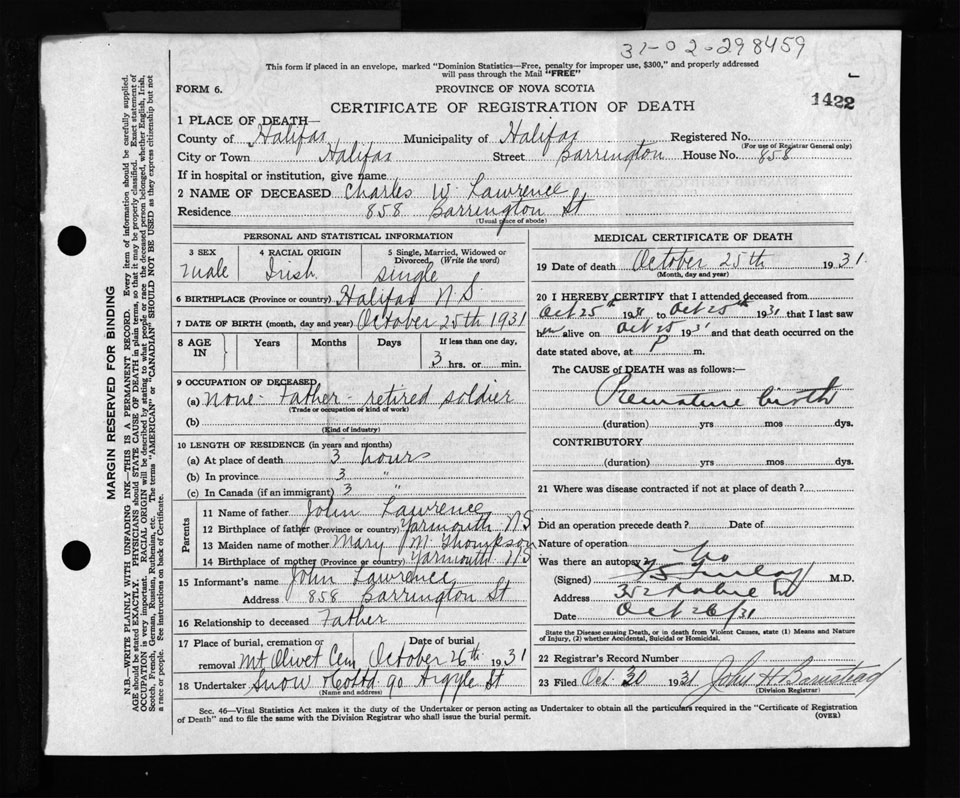 31-02-298459
This form if placed in an envelope, marked "Dominion Statistics—Free, penalty for improper use, $300," and properly addressed
will pass through the Mail "FREE"
FORM 6.
PROVINCE OF NOVA SCOTIA
1422
CERTIFICATE OF REGISTRATION OF DEATH
1 PLACE OF DEATH—
County of Halifax Municipality of Halifax Registered No.
(For use of Registrar General only)
City or Town Halifax Street Barrington House No. 858
If in hospital or institution, give name
2 NAME OF DECEASED Charles W. Lawrence
Residence 858 Barrington St
(Usual place of abode)
PERSONAL AND STATISTICAL INFORMATION
3 SEX 4 RACIAL ORIGIN 5 Single, Married, Widowed or
Divorced (Write the word)
Male Irish single
6 BIRTHPLACE (Province or country) Halifax N S.
7 DATE OF BIRTH (month, day and year) October 25th 1931
8 AGE IN Years Months Days If less than one day,
3 hrs. or min.
9 OCCUPATION OF DECEASED
(a) None - Father - retired soldier
(Trade or occupation or kind of work)
(b)
(Kind of industry)
10 LENGTH OF RESIDENCE (in years and months)
(a) At place of death 3 hours
(b) In province 3 "
(c) In Canada (if an immigrant) 3 "
Parents
11 Name of father John Lawrence
12 Birthplace of father (Province or country) Yarmouth NS
13 Maiden name of mother Mary M. Thompson
14 Birthplace of mother (Province or country) Yarmouth NS
15 Informant's name John Lawrence
Address 858 Barrington St
16 Relationship to deceased Father
17 Place of burial, cremation or Date of burial
removal Mt Olivet Cem October 26th 1931
18 Undertaker Snow & Co Ltd 90 Argyle St
(Name and address)
MEDICAL CERTIFICATE OF DEATH
19 Date of death October 25th 1931.
(Month, day and year)
20 I HEREBY CERTIFY that I attended deceased from
Oct 25th 1931 to Oct 25th 1931 that I last saw
him alive on Oct 25 1931 and that death occurred on the
date stated above, at P m.
The CAUSE of DEATH was as follows:—
Premature birth
(duration) yrs mos dys.
CONTRIBUTORY
(duration) yrs mos dys.
21 Where was disease contracted if not at place of death?
Did an operation precede death? Date of
Nature of operation
Was there an autopsy? No
(Signed) M.D.
Address 352
Date Oct 26/31
State the Disease causing Death, or in death from Violent Causes, state (1) Means and Nature
of Injury, (2) whether Accidental, Suicidal or Homicidal.
22 Registrar's Record Number
23 Filed Oct. 30 1931 John H Barnstead
(Division Registrar)
Sec. 46—Vital Statistics Act makes it the duty of the Undertaker or person acting as Undertaker to obtain all the particulars required in the "Certificate of Registration
of Death" and to file the same with the Division Registrar who shall issue the burial permit.
(OVER)
MARGIN RESERVED FOR BINDING
N.B.—WRITE PLAINLY WITH UNFADING INK—THIS IS A PERMANENT RECORD. Every item of information should be carefully supplied.
AGE should be stated EXACTLY. PHYSICIANS should STATE CAUSE OF DEATH in plain terms, so that it may be properly classified. Exact statement of
OCCUPATION is very important. RACIAL ORIGIN will be described by stating to what people or race the deceased person belonged, whether English, Irish,
Scotch, French, German, Russian, Ruthenian, etc. The terms "AMERICAN" or "CANADIAN" SHOULD NOT BE USED as they express citizenship but not
a race or people. See instructions on back of Certificate.